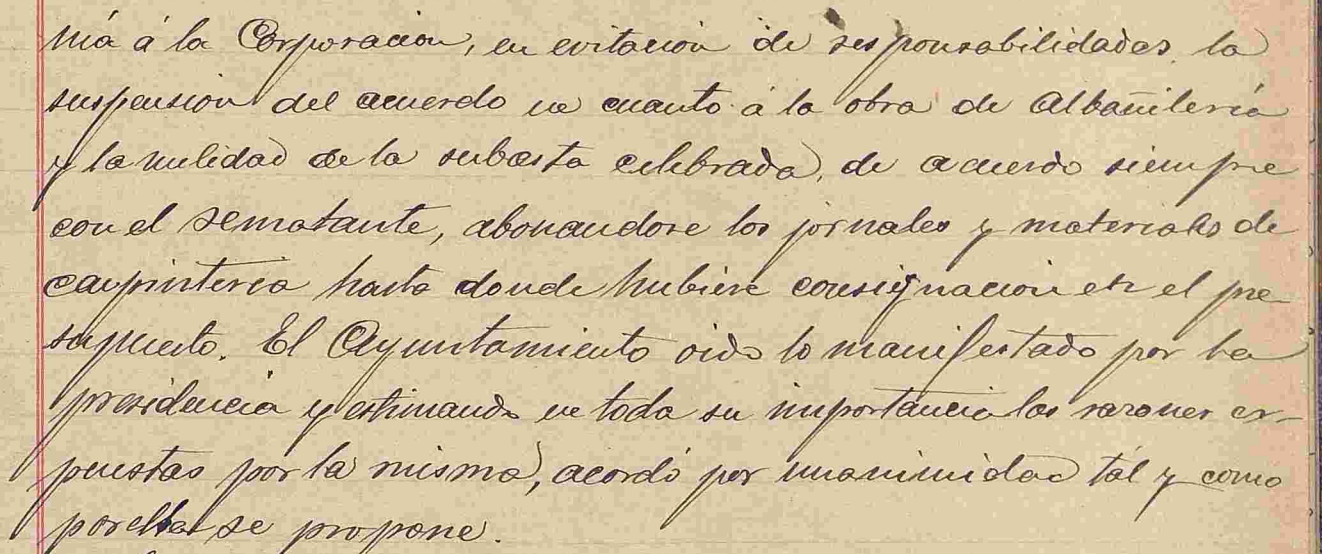 nía á la Corporacion, en evitacion de responsabilidades, la
suspension del acuerdo en cuanto á la obra de Albañilería
y la nulidad de la subasta celebrada, de acuerdo siempre
con el rematante, abonandose los jornales y materiales de
carpinteria hasta donde hubiere consignacion en el pre-
supuesto. El Ayuntamiento oido lo manifestado por la
presidencia y estimando en toda su importancia las razones ex-
puestas por la misma, acordó por unanimidad tál y como
por ella se propone.